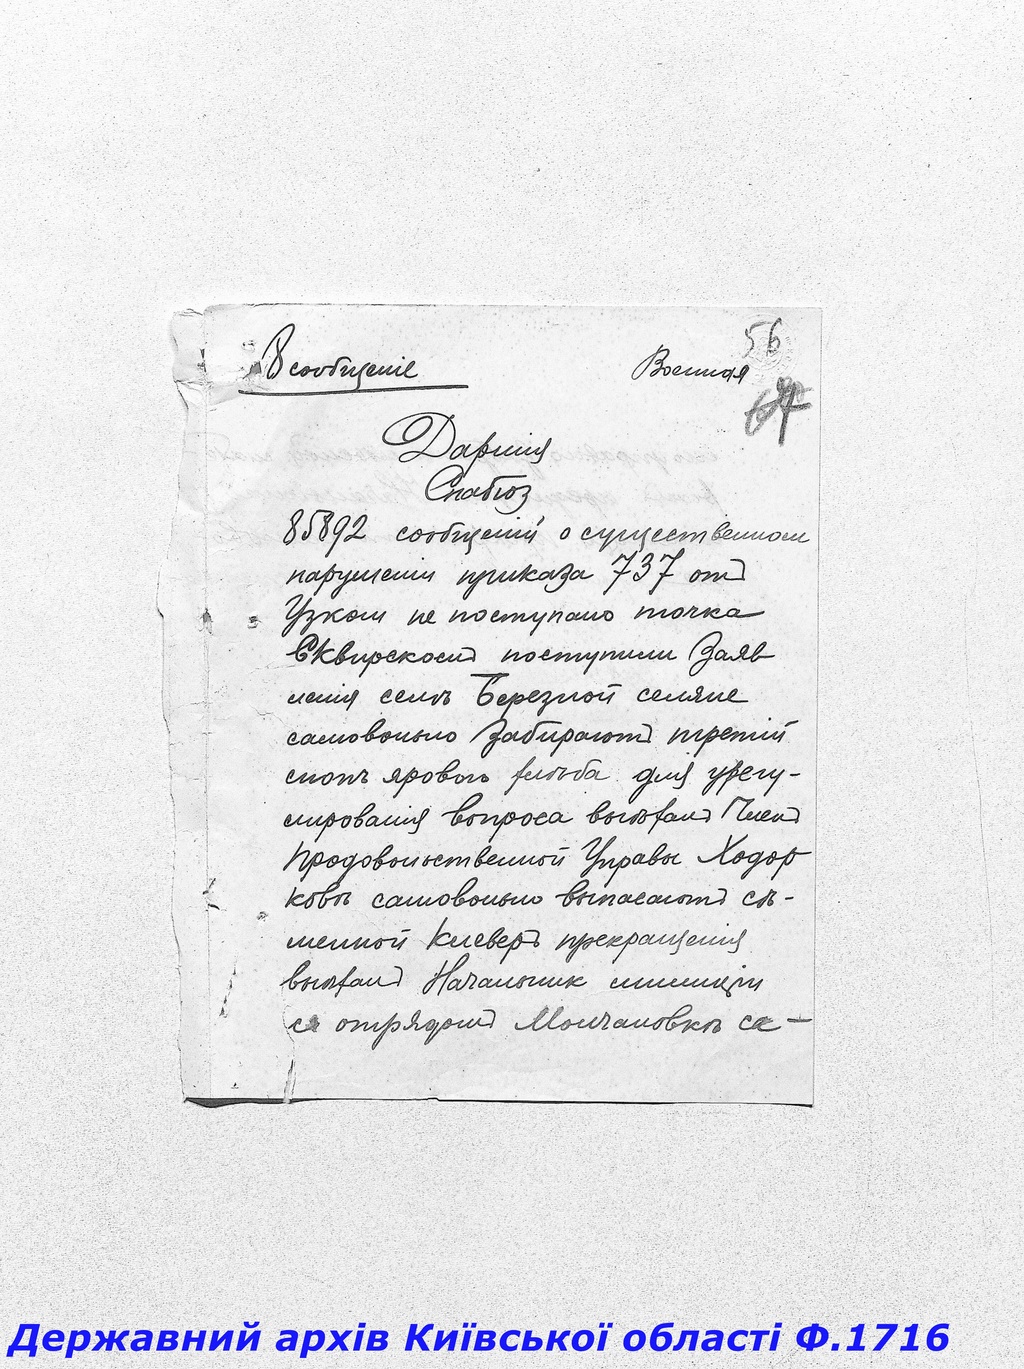 В сообщеніе
Военная
56
Дарнія
Снабюз
85892 сообщеній о существенном
нарушеніи приказа 737 от
Узком не поступало точка
Сквирском поступили Заяв
ленія селѣ Березной селяне
самовольно забирают третій
снопъ яроваго хлѣба для урегу-
лированія вопроса выѣхал Член
Продовольственной Управы Ходор
ковѣ самовольно выпасают сѣ-
менной Клеверъ прекращенія
выѣхал Начальник милиціи
с отрядом Молчановкѣ са-
Державний архів Київської області Ф.1716